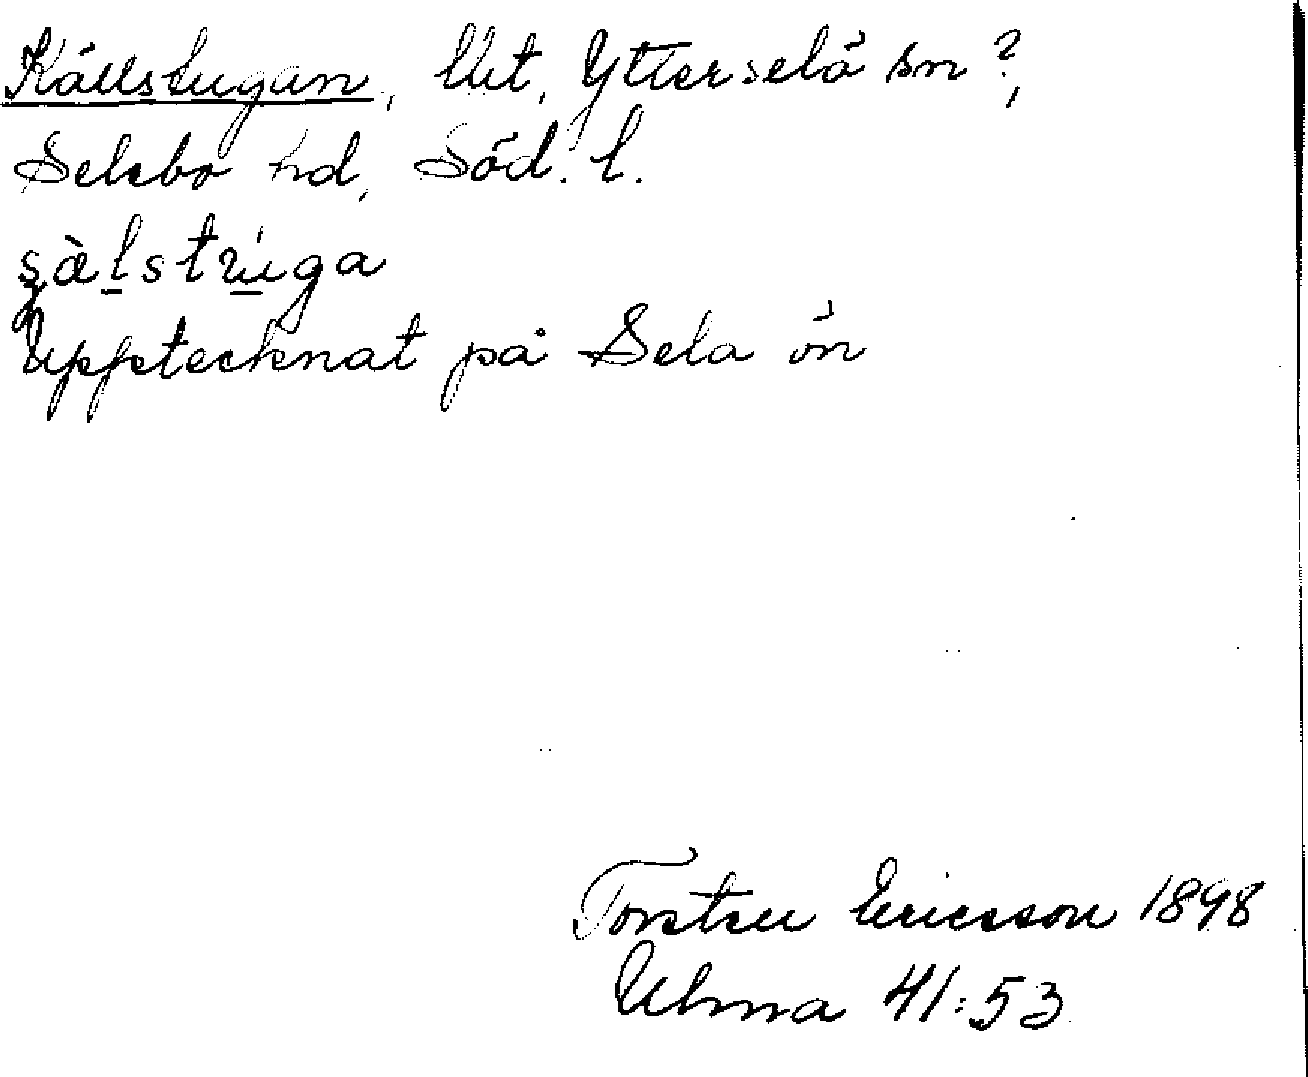 Källstugan, Utt, Ytterselö sn?,
Selebo hd, Söd. l.
sàlstúga
Upptecknat på Sela ön
Torsten Ericsson 1898
Ulma 41:53